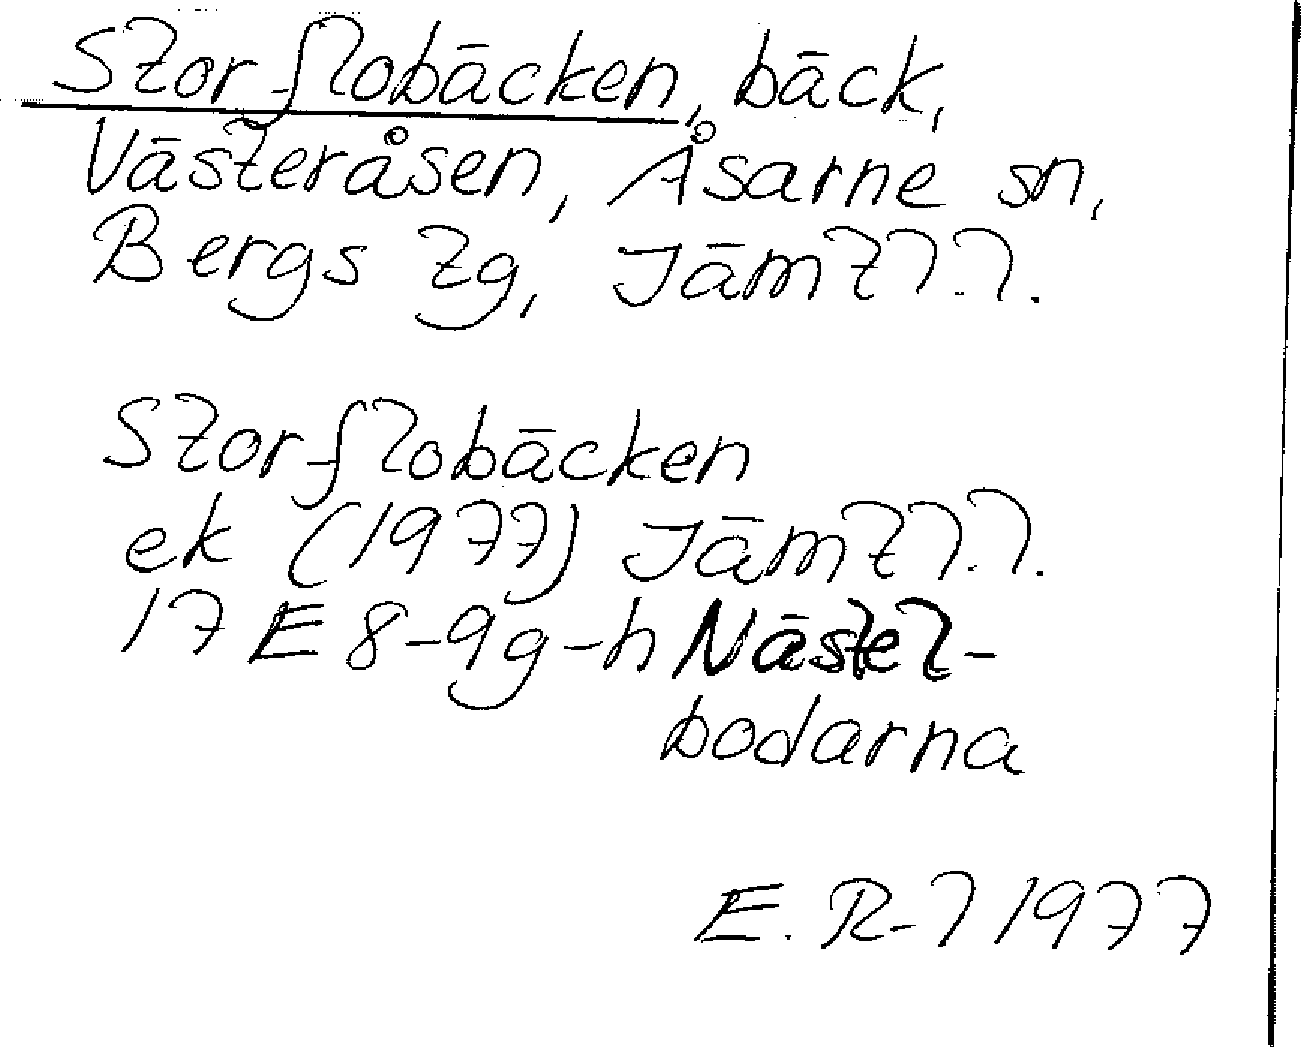 Storflobäcken, bäck,
Västeråsen, Åsarne sn,
Bergs tg, Jämtl.l.
Storflobäcken
ek (1977) Jämtl.l.
17 E 8-9g-h Nästel-
bodarna
E. R-l 1977